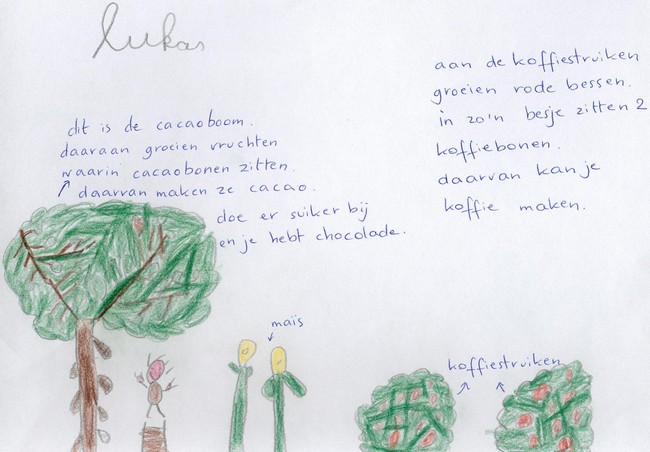 Lukas
dit is de cacaoboom.
daaraan groeien vruchten
waarin cacaobonen zitten.
daarvan maken ze cacao.
doe er suiker bij
en je hebt chocolade.
aan de koffiestruiken
groeien rode bessen.
in zo'n besje zitten 2
koffiebonen.
daarvan kan je
koffie maken.
maïs
koffiestruiken